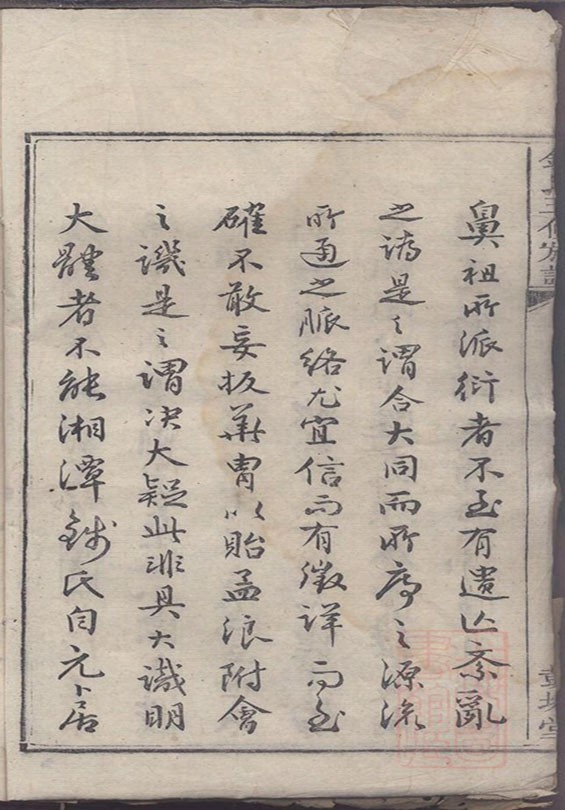 鼻祖所派衍者不至有遺亡紊亂
之譌是之謂合大同而所序之源流
所通之脈絡尤宜信而有徵詳而至
確不敢妄扳華胄以貽孟浪附會
之譏是之謂決大疑此非具大識明
大體者不能湘潭錢氏自元卜居